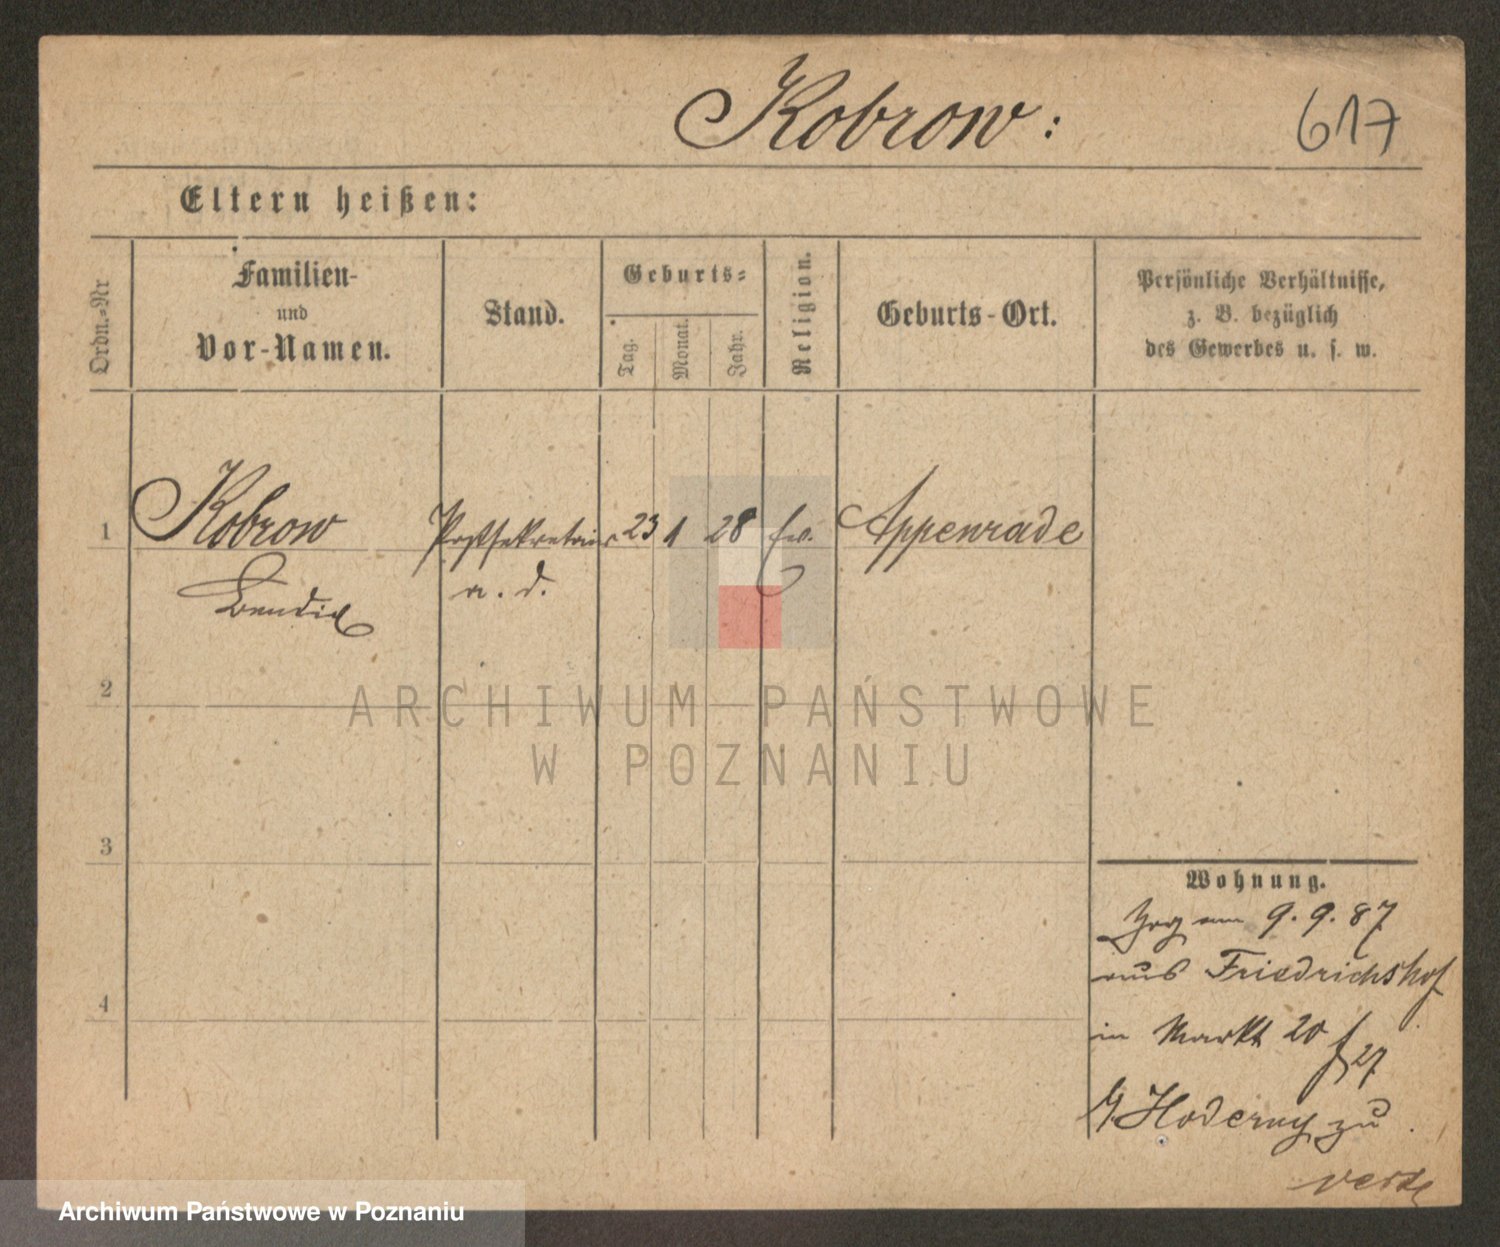 Kobrow:
617
Eltern heißen:
Ordn.-Nr
Familien-
und
Vor-Namen.
Stand.
Geburts-
Tag.
Monat.
Jahr.
Religion.
Geburts-Ort.
Persönliche Verhältnisse,
z. B. bezüglich
des Gewerbes u. s. w.
1 Kobrow Postsekretair 23 1 28 Ev. Appenrade
Bendix a. d.
2
ARCHIWUM PAŃSTWOWE
W POZNANIU
3
4
Wohnung.
Zog am 9. 9. 87
aus Friedrichshof
in Markt 20
27
zu
Archiwum Państwowe w Poznaniu